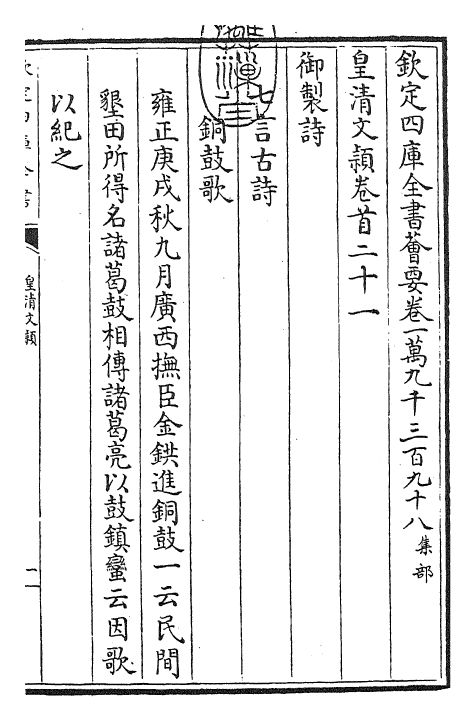 欽定四庫全書薈要卷一萬九千三百九十八 集部
皇清文頴卷首二十一
御製詩
七言古詩
銅鼓歌
雍正庚戌秋九月廣西撫臣金鉷進銅鼓一云民間
墾田所得名諸葛鼓相傳諸葛亮以鼓鎮蠻云因歌
以紀之
皇清文頴
一